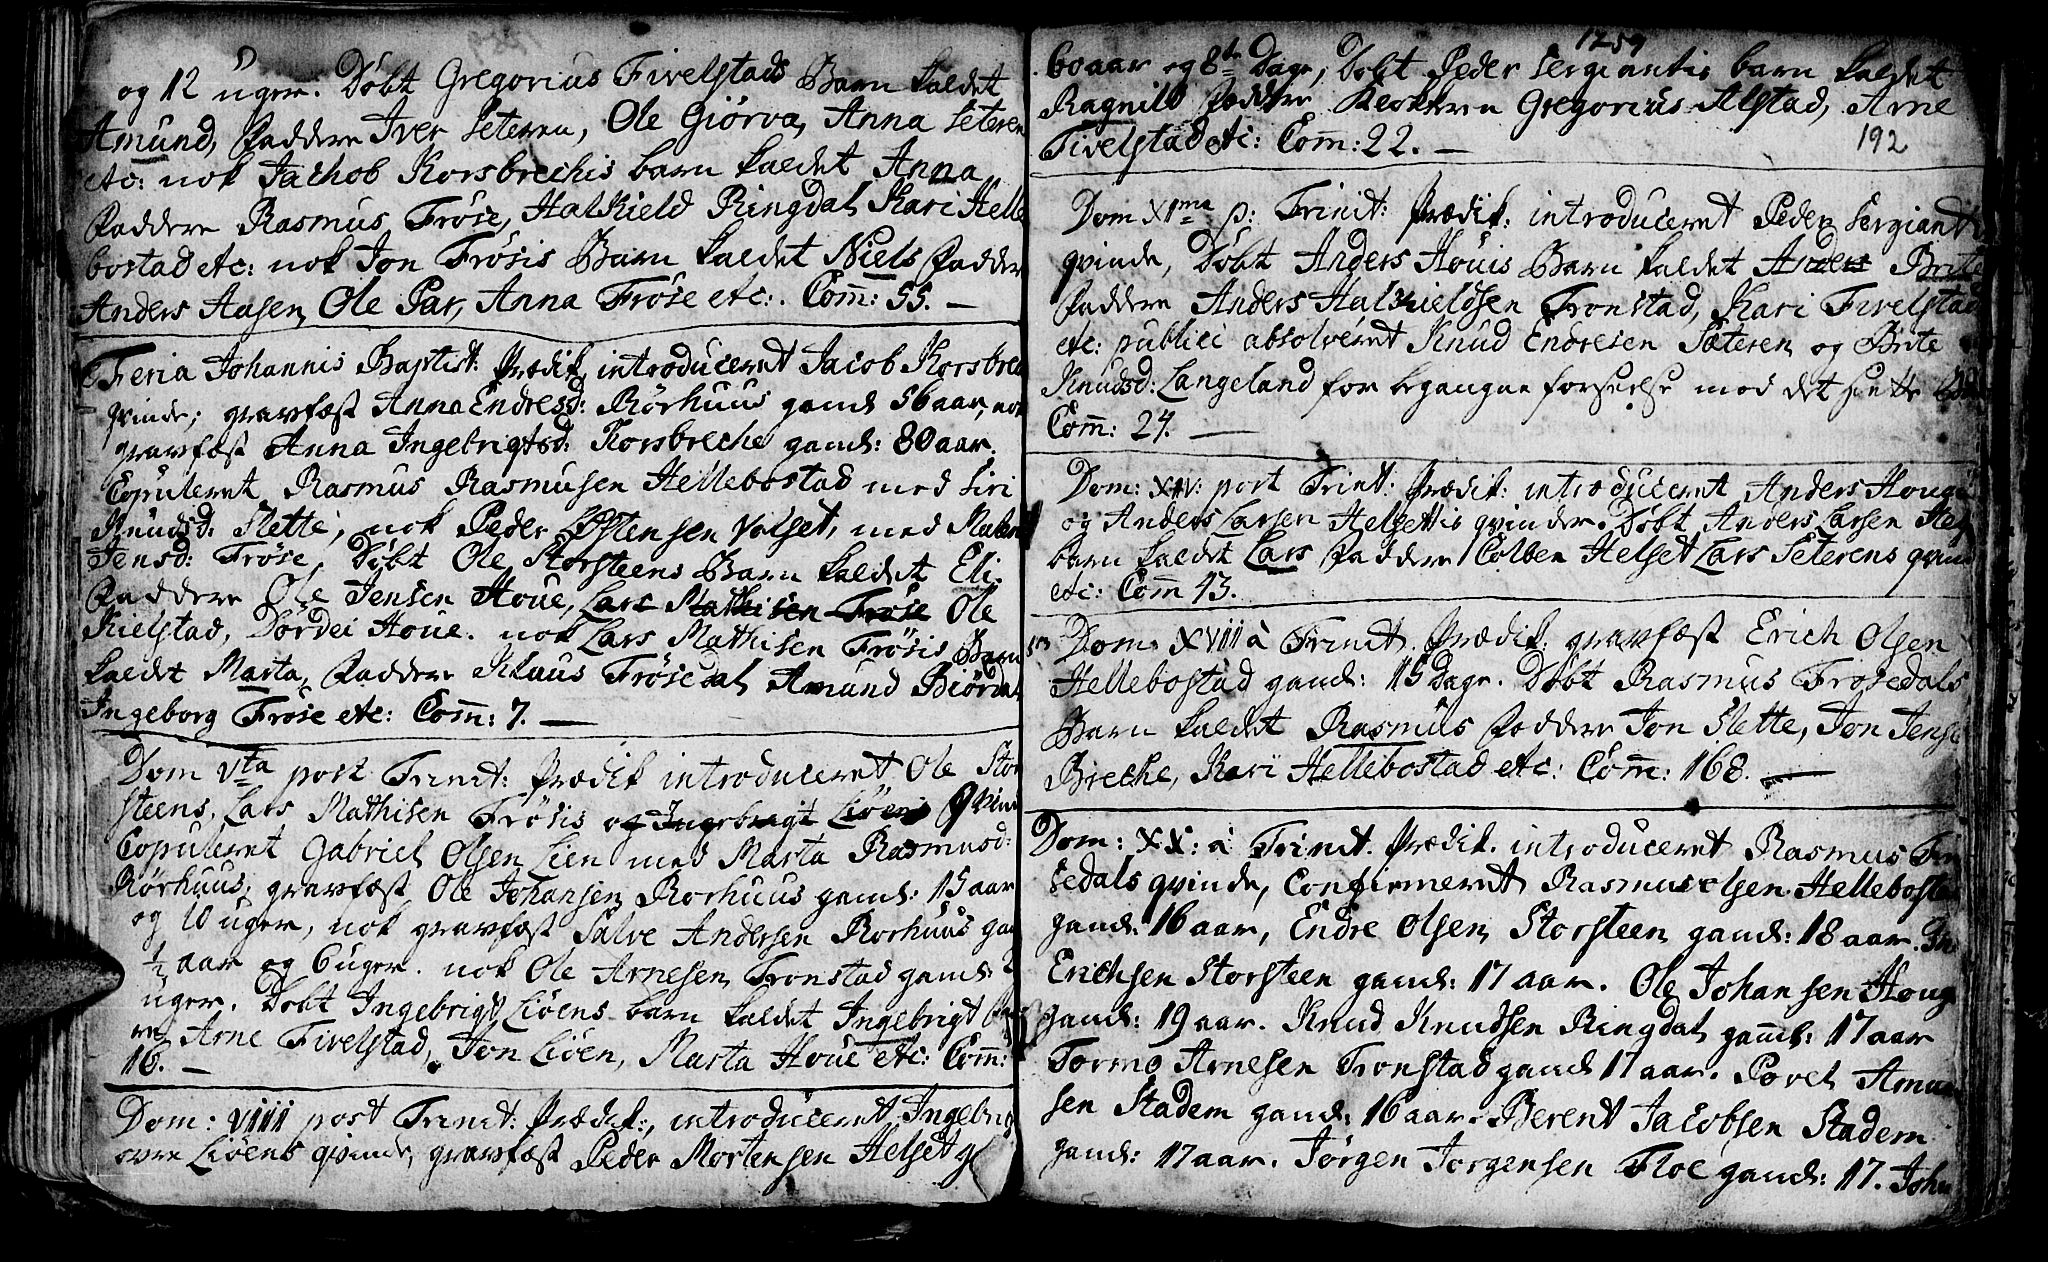 og 12 uger. Døbt Gregorius Fivelstads Barn kaldet
Amund, Faddere Iver Seteren, Ole Giørva, Anna Seteren
etc: nok Jachob Korsbrechis barn kaldet Anna
Faddere Rasmus Frøse, Halkield Ringdal, Kari Helle
bostad etc: nok Jon Frøsis Barn kaldet Niels Fadder
Anders Aasen, Ole Par, Anna Frøse etc:. Com̅: 55. —
Feria Johannis Baptist: Prædik, introduceret Jacob Korsbrec
qvinde; gravfæst Anna Endresd: Rørhuus gaml 56 aar, nok
gravfæst Anna Ingebrigtsd: Korsbreche gaml: 80 aar.
Copuleret Rasmus Rasmusen Hellebostad med Siri
Knudsd: Slette, nok Peder Østensen Volset, med Malene
Jensd: Frøse, Døbt Ole Storsteens Barn kaldet Eli.
Faddere Ole Jensen Houe, Lars Mathisen Frøse Ole
Kielstad, Dordei Houe. nok Lars Mathisen Frøsis Barn
kaldet Marta, Faddere Klaus Frøsedal Amund Biørdal
Ingeborg Frøse etc: Com̅: 7. —
Dom Vta post Trinit: Prædik introduceret Ole Stor
steens, Lars Mathisen Frøsis og Ingebrigt Liøens qvind
Copuleret Gabriel Olsen Lien med Marta Rasmusd:
Rørhuus, gravfæst Ole Johansen Rorhuus gaml: 15 aar
og 10 uger, nok gravfæst Salve Andersen Rorhuus ga
½ aar og 6 uger. nok Ole Arnesen Tronstad gaml: 2
uger. Døbt Ingebrigt Liøens barn kaldet Ingebrigt Fad
re Arne Fivelstad, Jon Liøen, Marta Houe etc: Com̅:
16. —
Dom: VIIII post Trinit: Prædik:, introduceret Ingebrig
ovre Liøens qvinde, gravfæst Peder Mortensen Helset g
1759
60 aar og 8te Dage, Døbt Peder Sergiantis barn kaldet
Ragnild Faddere Klokkeren Gregorius Alstad, Arne
Fivelstad etc: Com̅: 22. —
192
Dom XIma p: Trinit: Prædik: introduceret Peder Sergiant
qvinde, Døbt Anders Houis Barn kaldet Anders Brite
Faddere Anders Halkieldsen Tronstad, Kari Fivelstad
etc: publici absolveret Knud Endresen Sæteren og Brite
Knudsd: Langeland for begangne forseelse mod det siette Bud
Com̅: 24. —
Dom: XIV: port Trinit: Prædik: introduceret Anders Houg
og Anders Larsen Helsettis qvinder. Døbt Anders Larsen Hels
barn kaldet Lars Faddere Colben Helset Lars Seterens qvin
etc: Com̅ 43.
Dom: XVIII à Trinit Prædik: gravfæst Erich Olsen
Hellebostad gaml: 15 Dage. Døbt Rasmus Frøsedals
Barn kaldet Rasmus Faddere Jon Slette, Jon Jens
Breche, Kari Hellebostad etc: Com̅: 168. —
Dom: XX: à Trinit. Prædik. introduceret Rasmus Frø
sedals qvinde, Confirmeret Rasmus Olsen Hellebosta
gaml: 16 aar, Endre Olsen Storsteen gaml: 18 aar.
Erichsen Storsteen gaml: 17 aar. Ole Johansen Houg
gaml: 19 aar. Knud Knudsen Ringdal gaml: 17 aar
Tormo Arnesen Tronstad gaml 17 aar. Povel Amun
sen Stadem gaml: 16 aar. Berent Jacobsen Stadem
gaml: 17 aar. Jørgen Jorgensen Floe gaml: 17. Joha